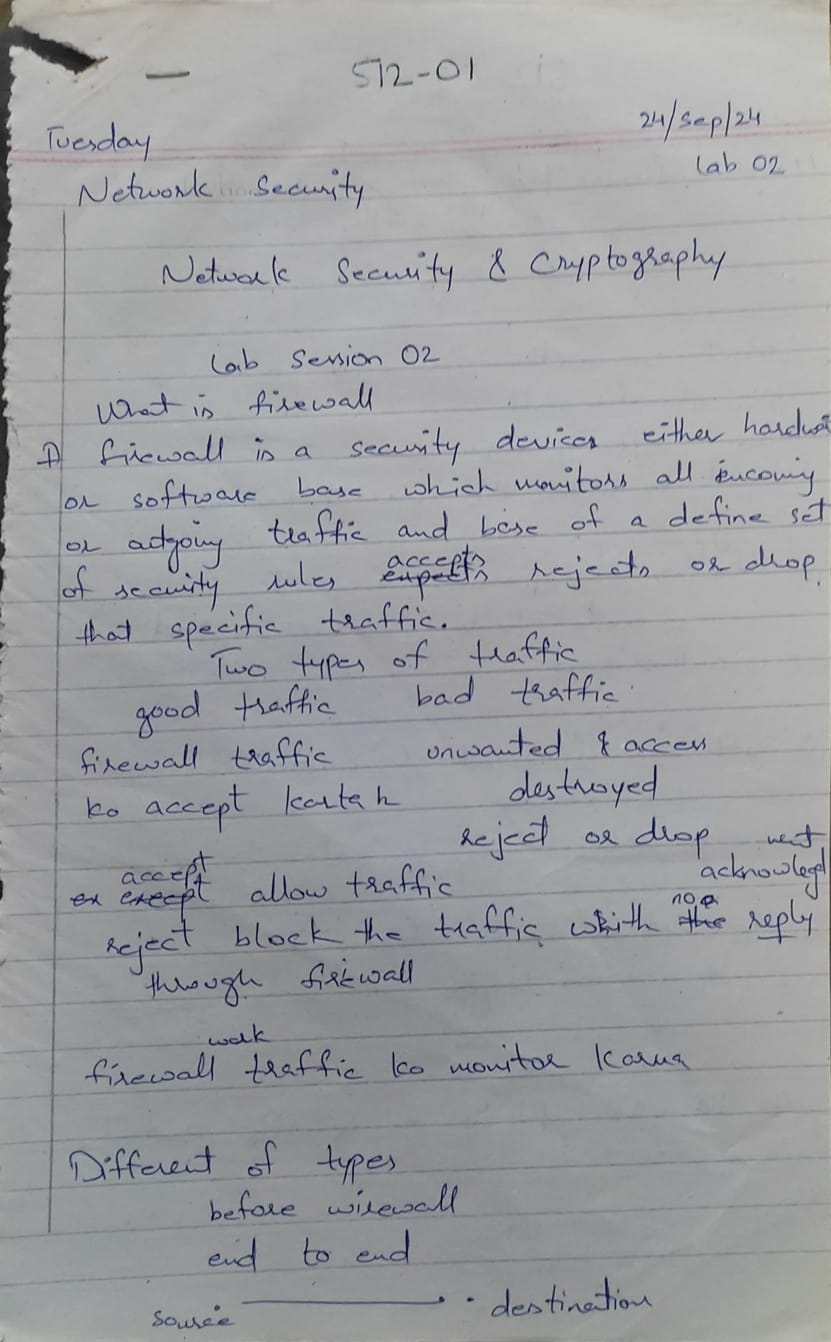 572-01
24/Sep/24
Tuesday
Lab 02
Network Security
Network Security & Cryptography
Lab Session 02
What is firewall
firewall is a security devices either hardwa
or software base which monitors all incoming
or adgoing traffic and base of a define set
of security rules accepts rejects or drop
that specific traffic.
Two types of traffic
good traffic bad traffic
firewall traffic unwanted & access
ko accept kartah destroyed
reject or drop
accept acknowlegd
allow traffic
reject block the traffic with no a reply
through firewall
work
firewall traffic ko monitor karna
Different of types
before wirewall
end to end
source destination